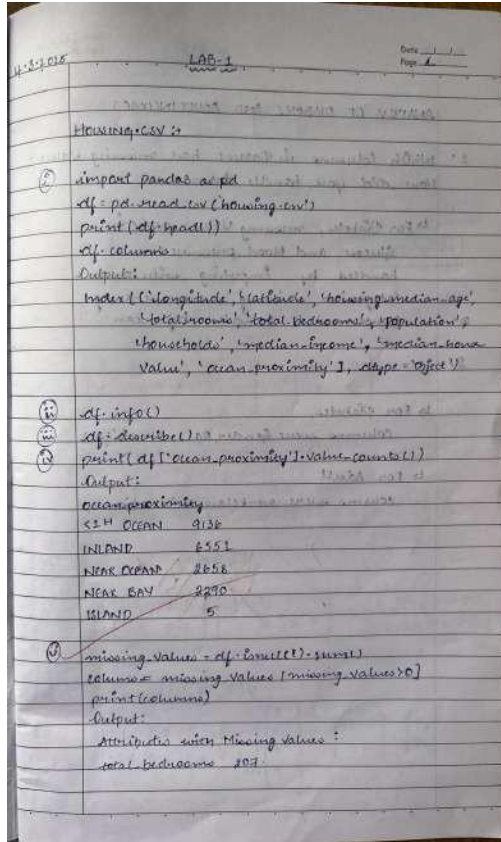 4.3.2025
LAB-1
Date __/__/__
Page 1
HOUSING.CSV :→
(i) import pandas as pd
df = pd.read_csv('housing.csv')
print(df.head())
df.columns
Output:
Index(['longitude', 'latitude', 'housing_median_age',
'total_rooms', 'total_bedrooms', 'population',
'households', 'median_income', 'median_house
value', 'ocean_proximity'], dtype = 'object')
(ii) df.info()
(iii) df.describe()
(iv) print(df['ocean_proximity'].value_counts())
Output:
ocean_proximity
<1H OCEAN 9136
INLAND 6551
NEAR OCEAN 2658
NEAR BAY 2290
ISLAND 5
(v) missing_values = df.isnull().sum()
columns = missing_values[missing_values>0]
print(columns)
Output:
Attributes with Missing Values :
total_bedrooms 207